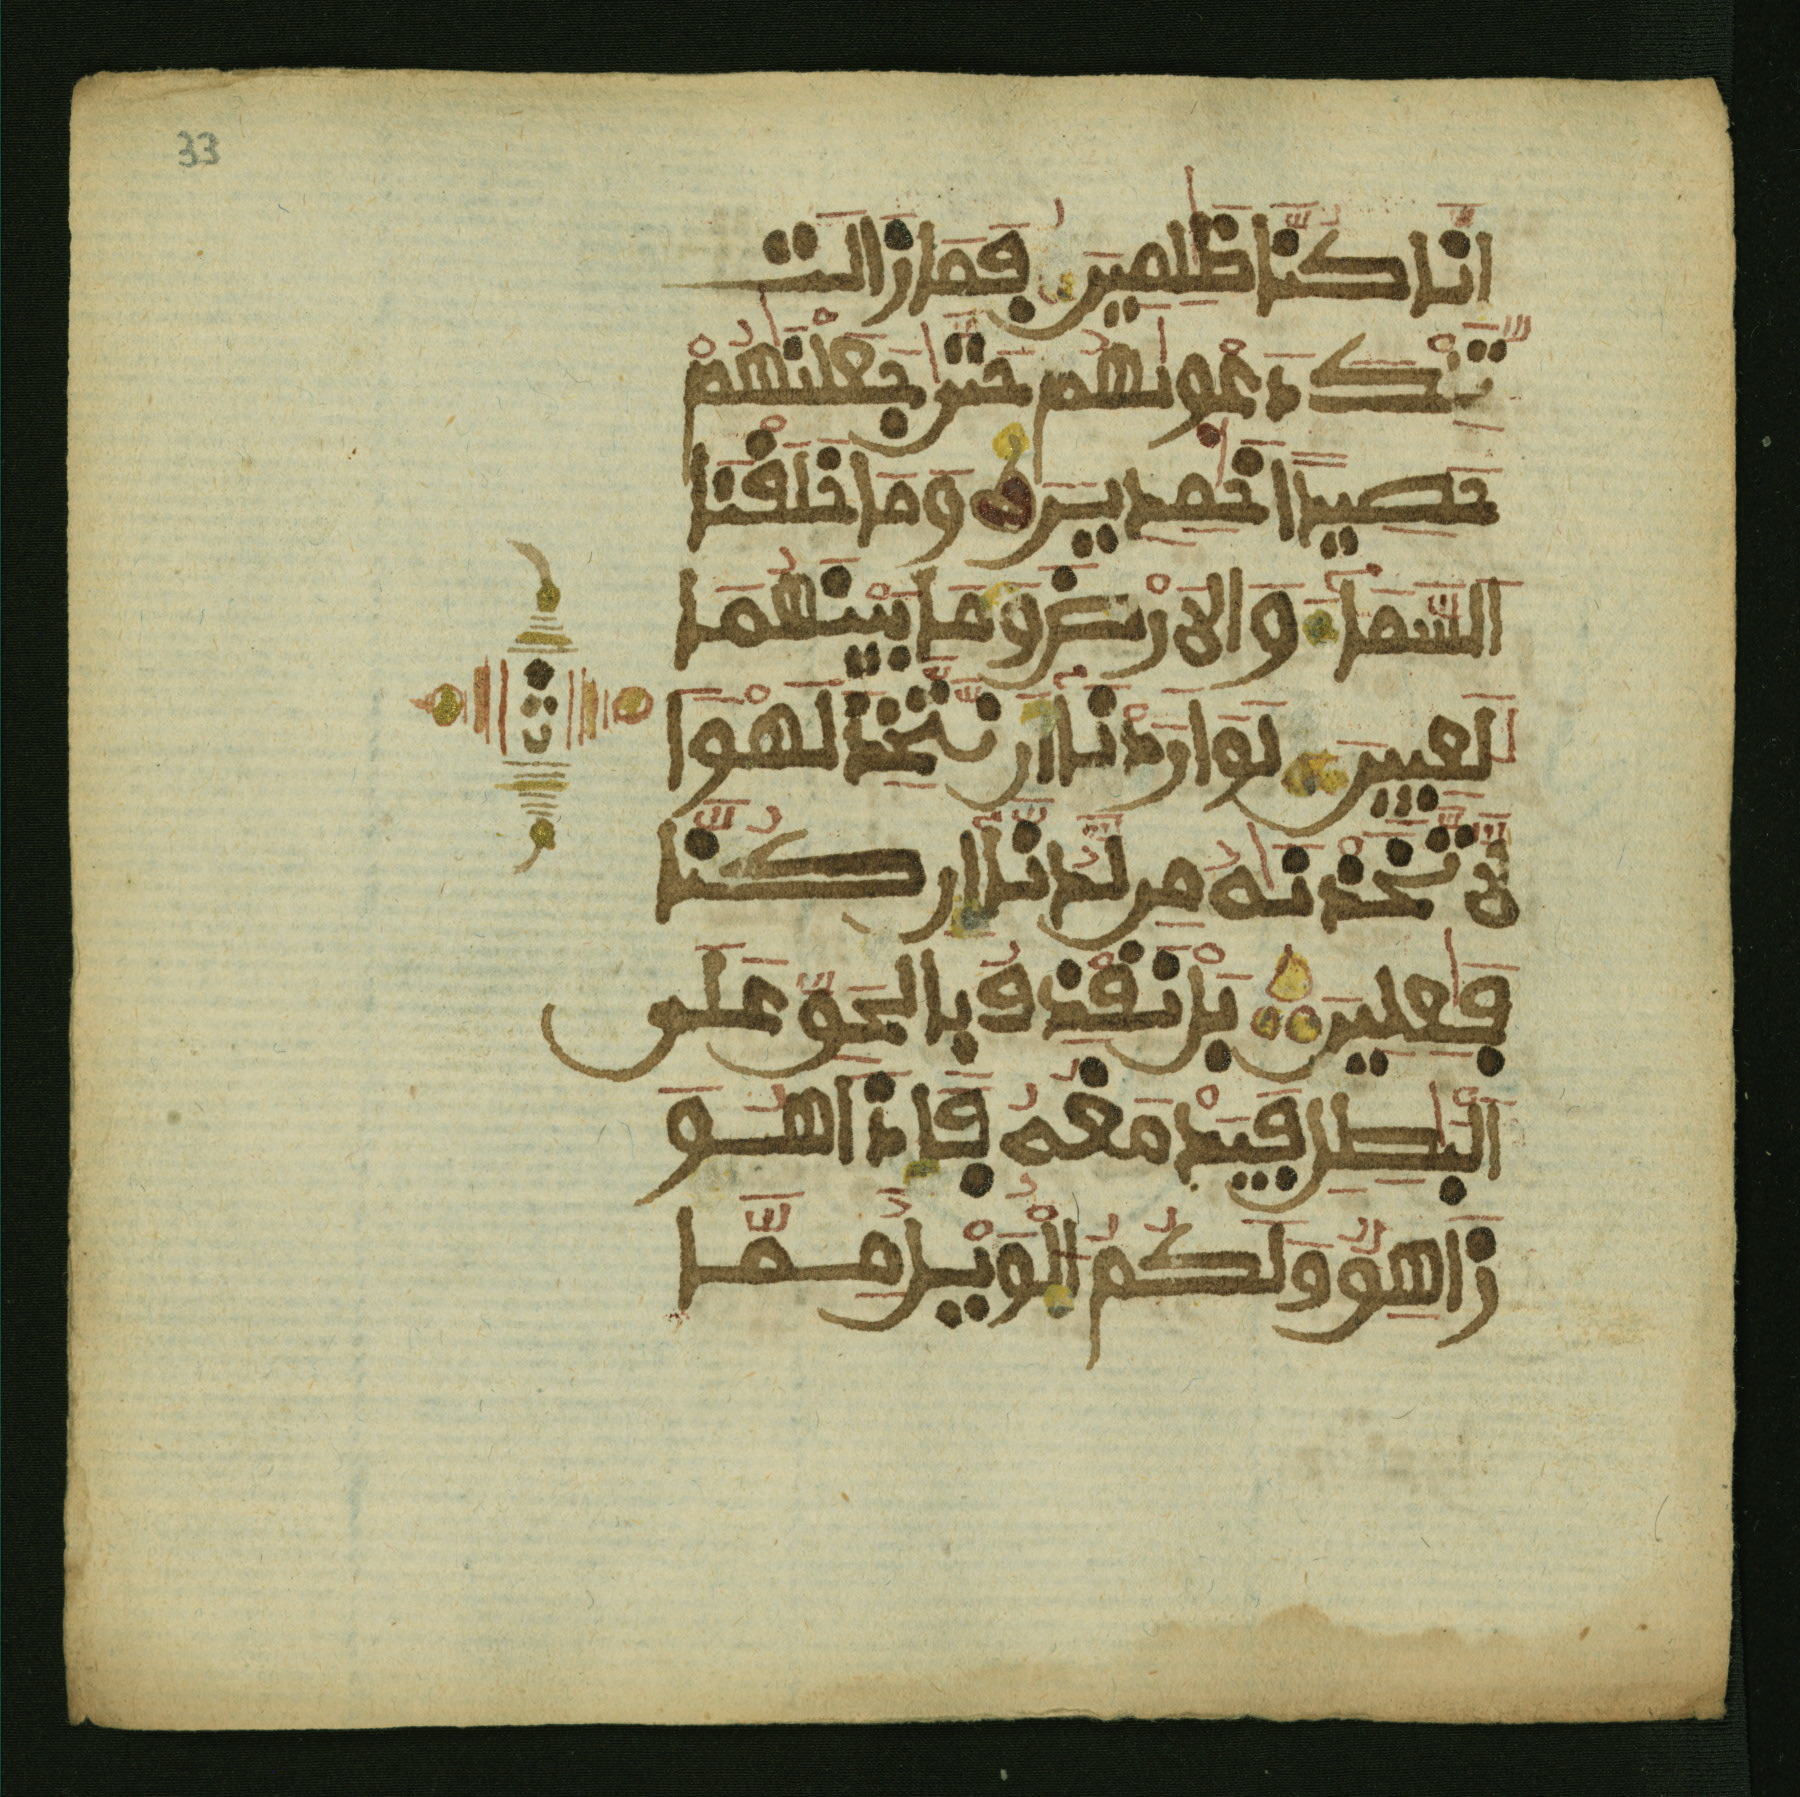 33
انا كنا ظلمين فما زالت
تلك دعويهم حتى جعلنهم
حصيدا خمدين وما خلقنا
السماء والارض وما بينهما
لعبين لو اردنا ان نتخذ لهوا
لاتخذنه من لدنا ان كنا
فعلين بل نقذف بالحق على
البطل فيدمغه فاذا هو
زاهق ولكم الويل مما